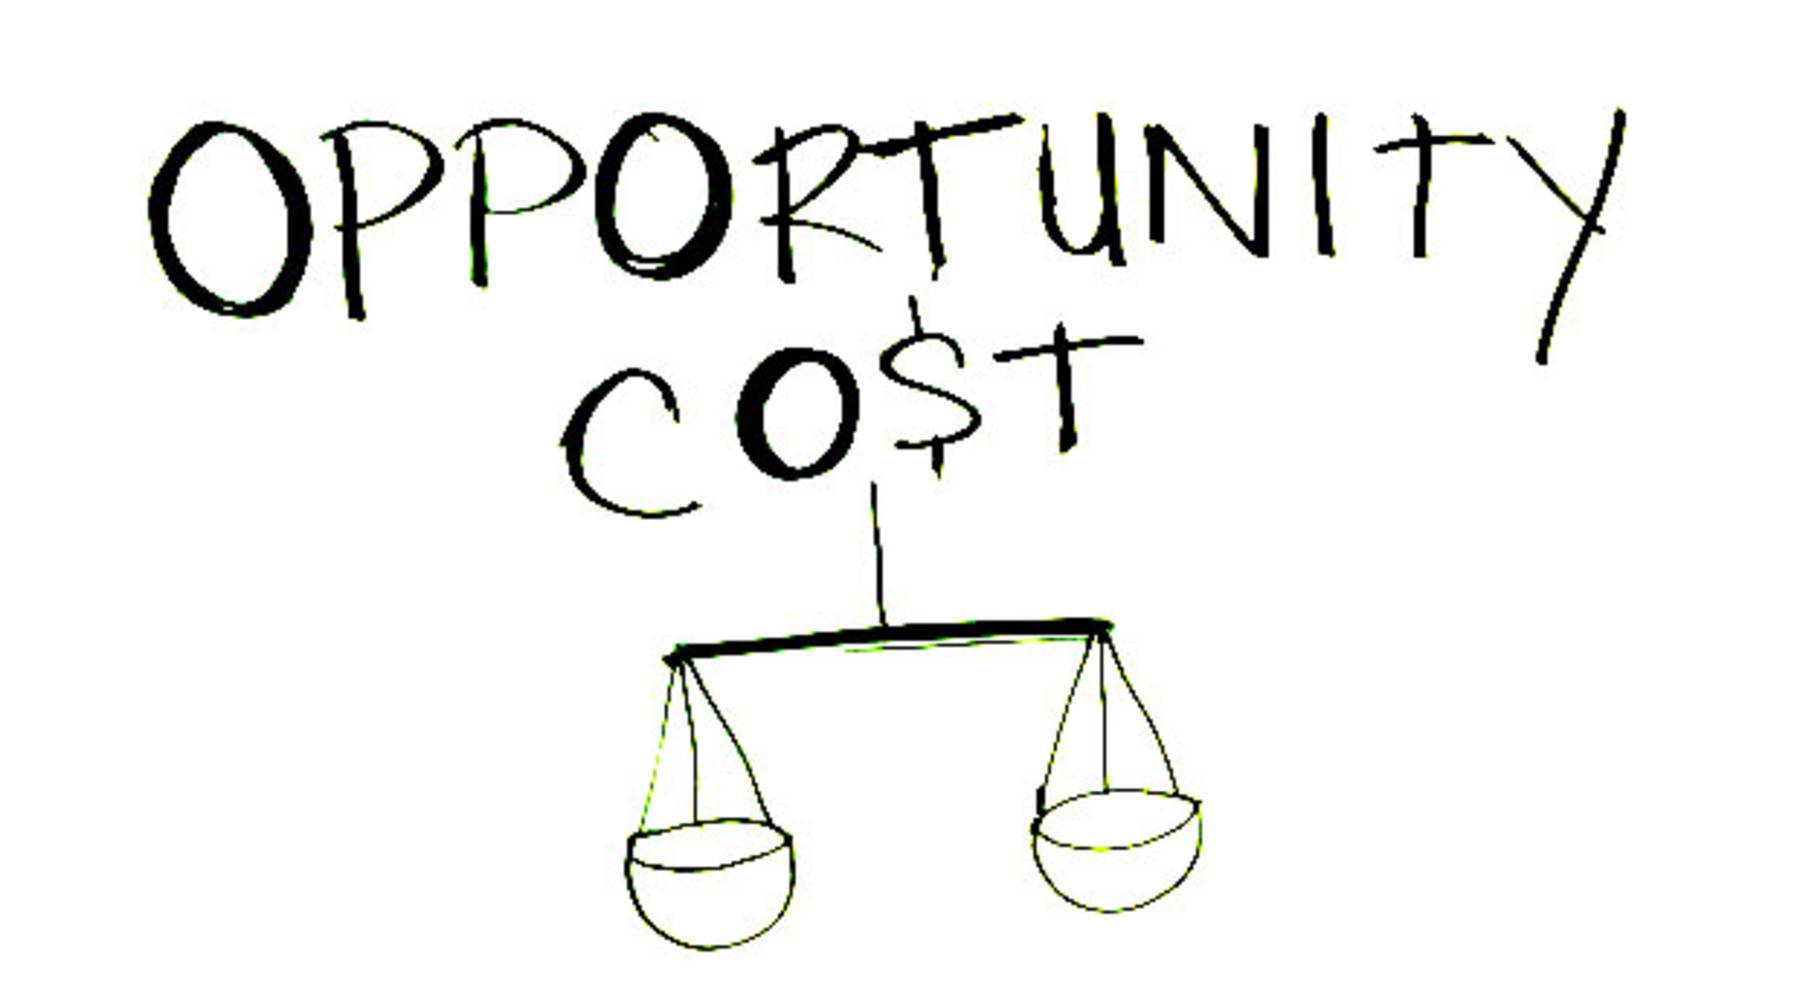 OPPORTUNITY
CO$T